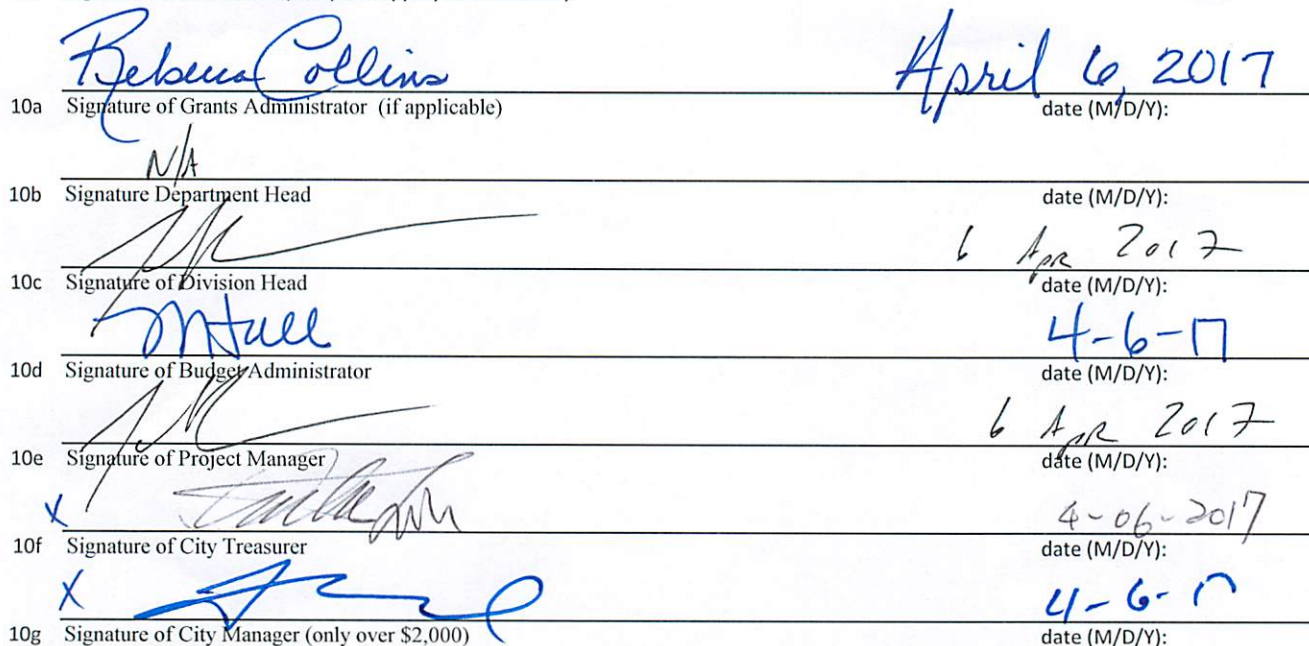 Rebecca Collins April 6, 2017
10a Signature of Grants Administrator (if applicable) date (M/D/Y):
N/A
10b Signature Department Head date (M/D/Y):
6 Apr 2017
10c Signature of Division Head date (M/D/Y):
MHall 4-6-17
10d Signature of Budget Administrator date (M/D/Y):
6 Apr 2017
10e Signature of Project Manager date (M/D/Y):
X 4-06-2017
10f Signature of City Treasurer date (M/D/Y):
X 4-6-17
10g Signature of City Manager (only over $2,000) date (M/D/Y):